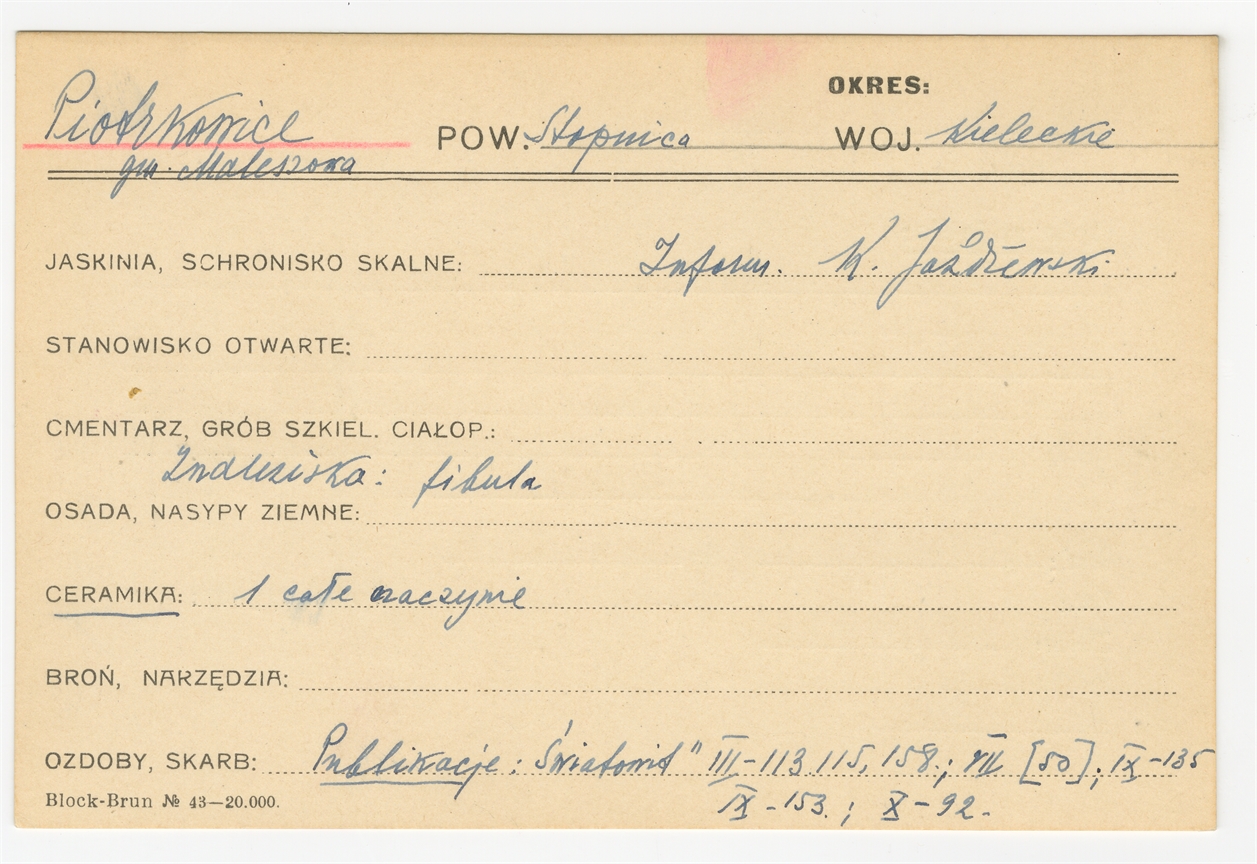 OKRES:
Piotrkowice POW. Stopnica WOJ. Kieleckie
gm. Maleszowa
JASKINIA, SCHRONISKO SKALNE: Inform. K. Jażdżewski
STANOWISKO OTWARTE:
CMENTARZ, GRÓB SZKIEL. CIAŁOP.:
Znaleziska: fibula
OSADA, NASYPY ZIEMNE:
CERAMIKA: 1 całe naczynie
BROŃ, NARZĘDZIA:
OZDOBY, SKARB: Publikacje: Światowit" III-113.115, 158.; VII [50]; IX-135
Block-Brun № 43—20.000. IX-153.; X-92.